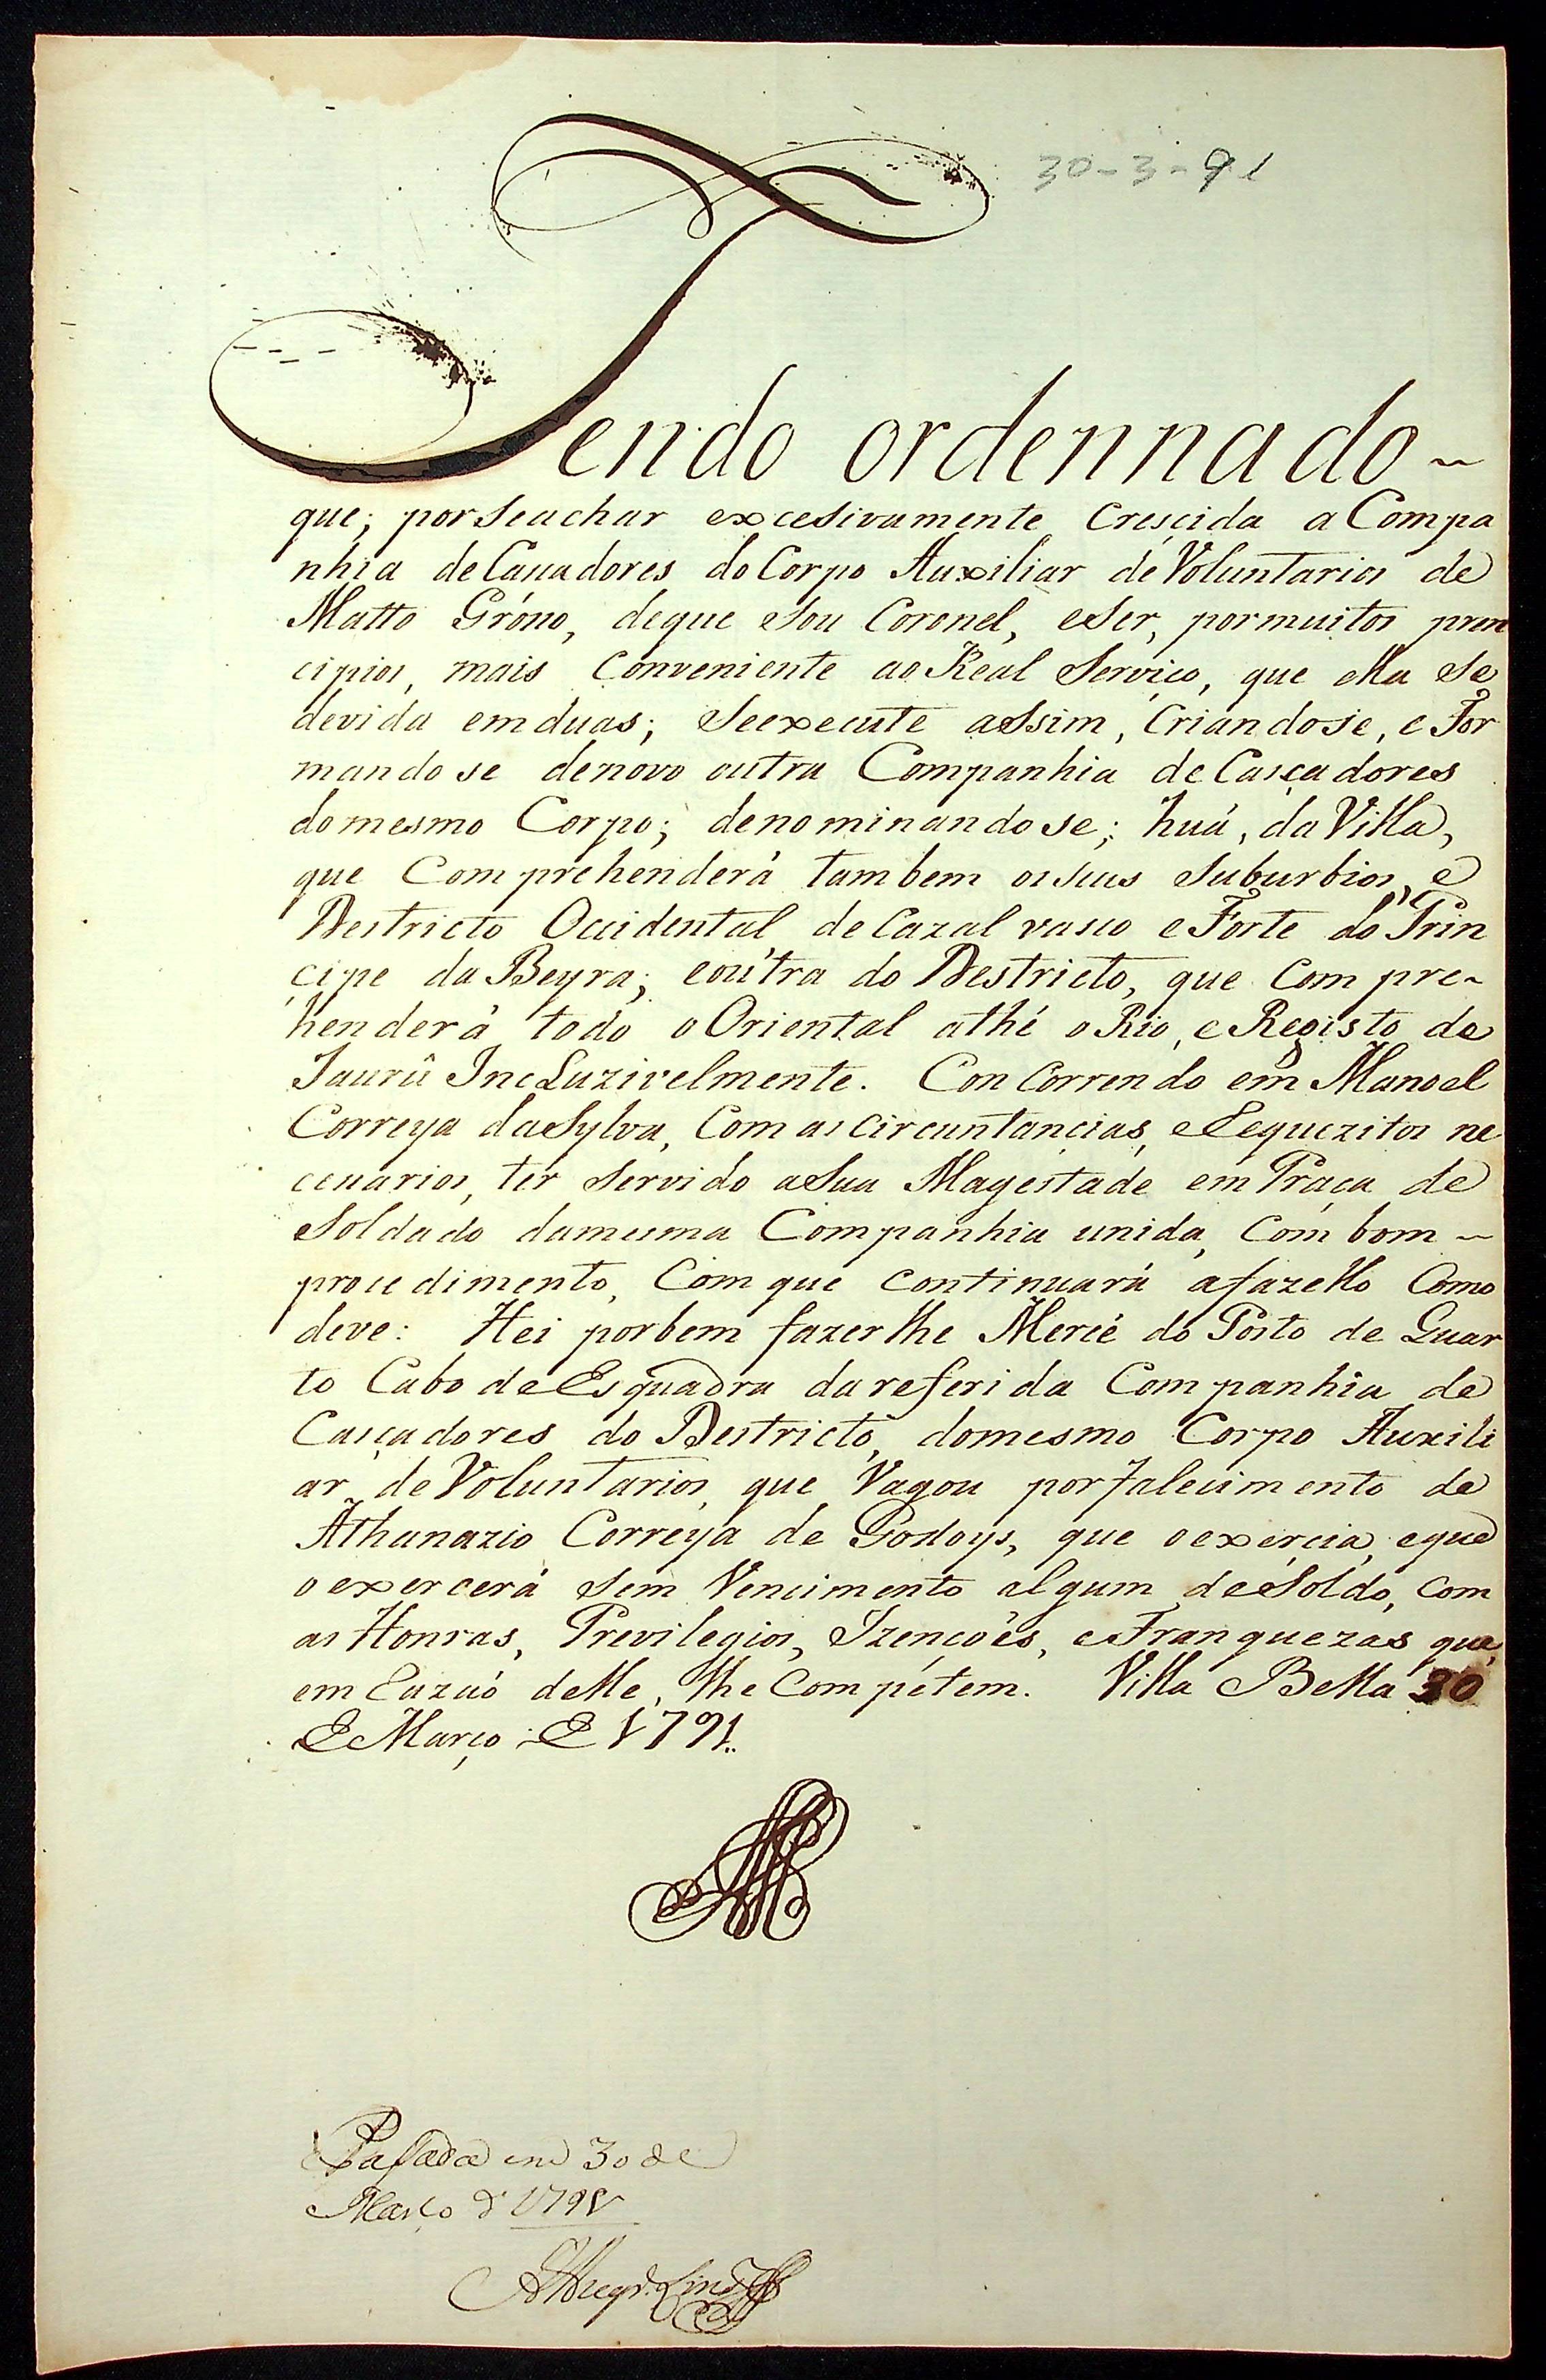 30-3-91
Tendo ordennado ~
que; por se achar excesivamente Crescida a Compa
nhia de Cassadores do Corpo Auxiliar de Voluntarios de
Matto Grósso, de que Sou Coronel, e Ser, por muitos prin
cipios, mais Conveniente ao Real Serviço, que ella Se
devida em duas; Se execute assim, Criandose, e For
mandose de novo outra Companhia de Casçadores
do mesmo Corpo; denominandose; huá, da Villa,
que Comprehenderá tambem os Seus Suburbios, e
Destricto Occidental de Cazal vasco e Forte do Prin
cipe da Beyra; e oútra do Destricto, que Compre~
henderá todo o Oriental athé o Rio, e Registo de
Jaurû IncLuzivelmente. Con Correndo em Manoel
Correya da Sylva, Com as Circuntancias, e Requezitos ne
cessarios, ter Servido a Sua Magestade em Praça de
Soldado da mesma Companhia unida, Com bom ~
procedimento, Com que Continuará a fazello Como
deve: Hei por bem fazer lhe Mercé do Posto de Quar
to Cabo de Esquadra da referida Companhia de
Casçadores do Destricto, do mesmo Corpo Auxili
ar de Voluntarios, que Vagou por falecimento de
Athanazio Correya de Godoys, que o exercia, e que
o exercerá Sem Vencimento algum de Soldo, Com
as Honras, Previlegios, Izençoẽs, e Franquezas que,
em Razaó delle, lhe Compétem. Villa Bella 30
De Março De 1791..
Pasada em 30 de
Março d' 1791